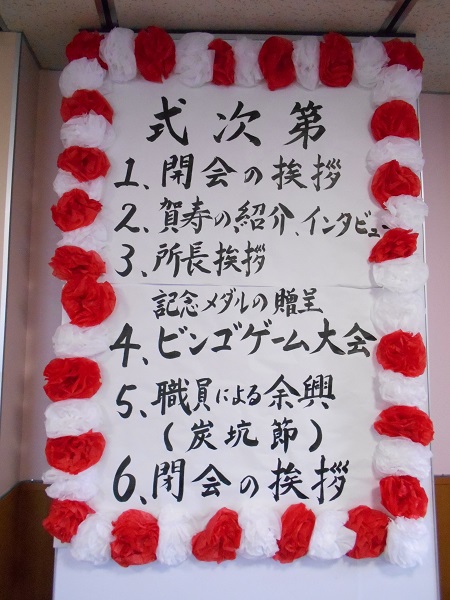 式次第
1、開会の挨拶
2、賀寿の紹介、インタビュー
3、所長挨拶
記念メダルの贈呈
4、ビンゴゲーム大会
5、職員による余興
(炭坑節)
6、閉会の挨拶